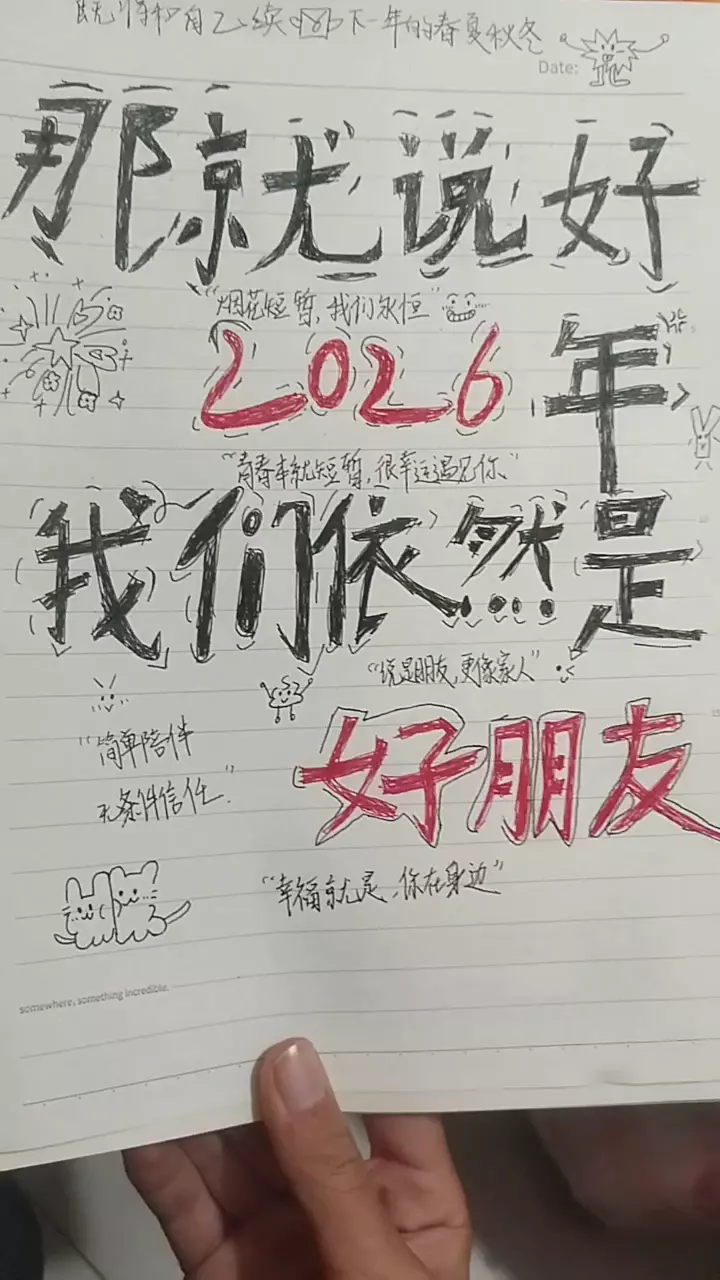 自己续 下一年的春夏秋冬
Date:
那就说好
"烟花短暂,我们永恒"
2026年
"青春本就短暂,很幸运遇见你"
我们依然是
"说是朋友,更像家人"
"简单陪伴
无条件信任."
好朋友
"幸福就是,你在身边"
somewhere, something incredible.